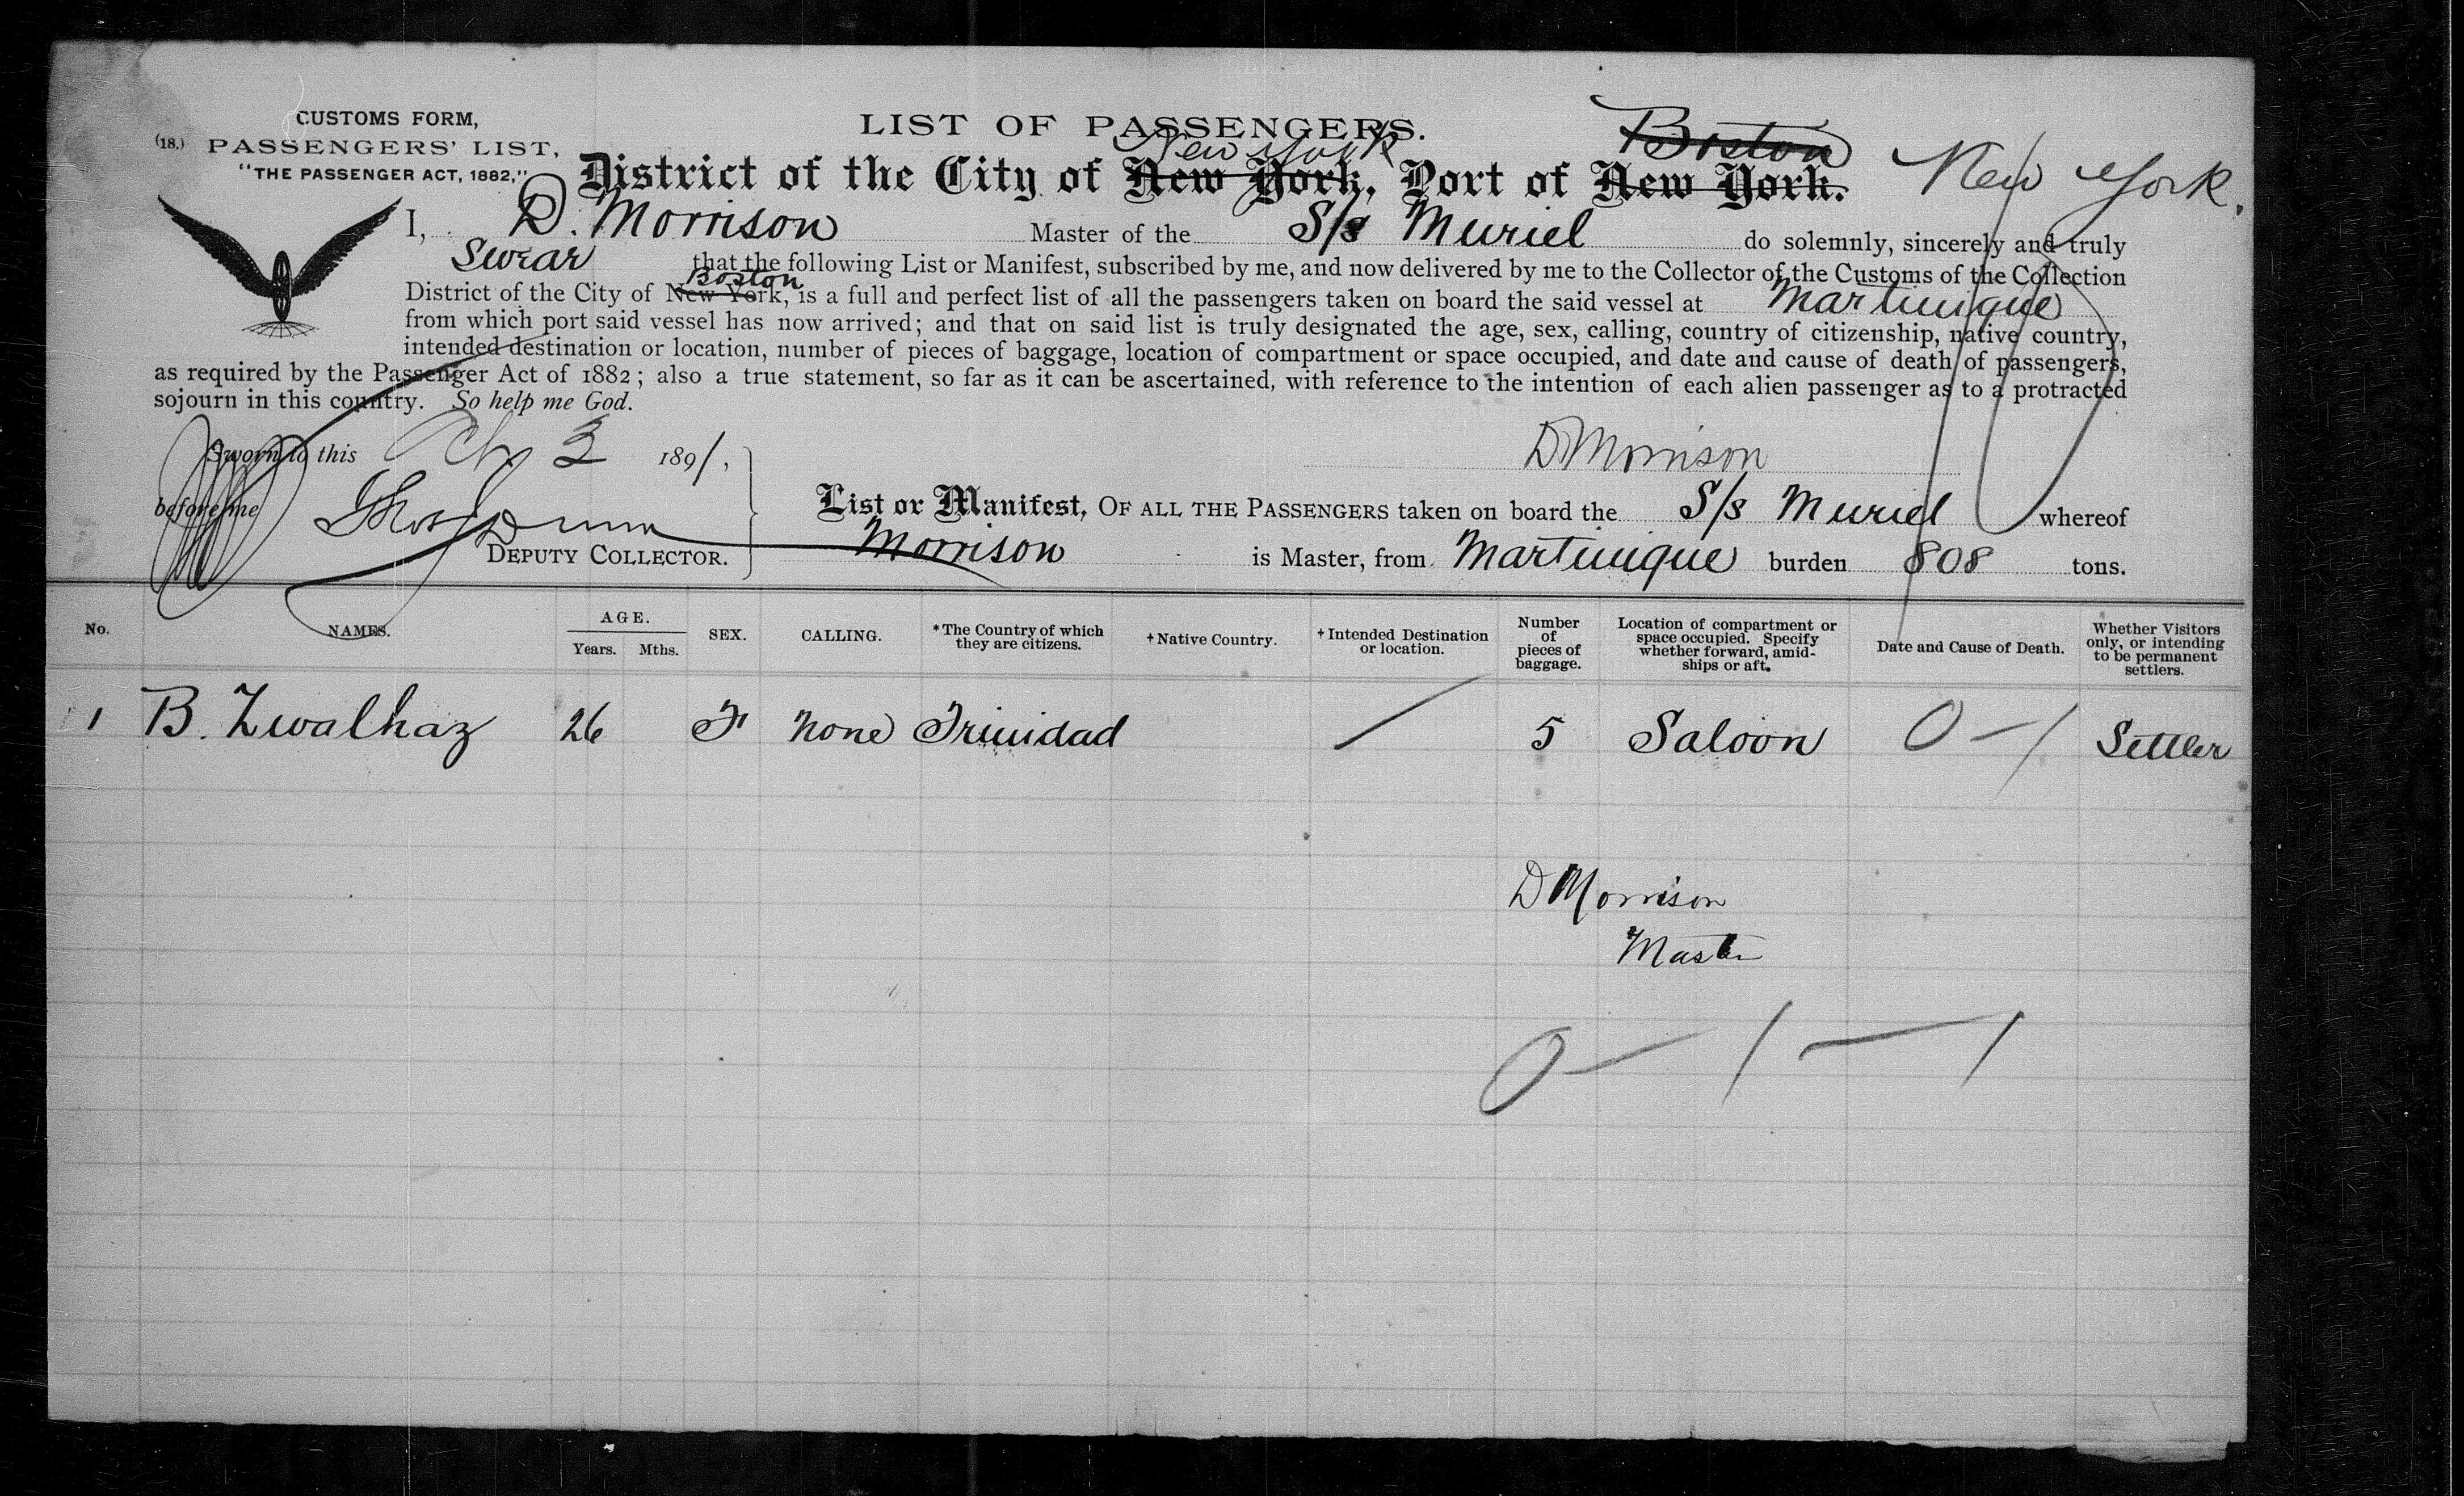 CUSTOMS FORM,
(18.) PASSENGERS' LIST,
"THE PASSENGER ACT, 1882,"
LIST OF PASSENGERS.
New York Boston
District of the City of New York, Port of New York. New York.
I, D. Morrison Master of the S/s Muriel do solemnly, sincerely and truly
Swear that the following List or Manifest, subscribed by me, and now delivered by me to the Collector of the Customs of the Collection
Boston
District of the City of New York, is a full and perfect list of all the passengers taken on board the said vessel at Martinique
from which port said vessel has now arrived; and that on said list is truly designated the age, sex, calling, country of citizenship, native country,
intended destination or location, number of pieces of baggage, location of compartment or space occupied, and date and cause of death of passengers,
as required by the Passenger Act of 1882; also a true statement, so far as it can be ascertained, with reference to the intention of each alien passenger as to a protracted
sojourn in this country. So help me God.
Sworn to this 3 1891,
D Morrison
before me Thos Dunn
DEPUTY COLLECTOR.
List or Manifest, OF ALL THE PASSENGERS taken on board the S/s Muriel whereof
Morrison is Master, from Martinique burden 808 tons.
No. NAMES. AGE. Years. Mths. SEX. CALLING. *The Country of which they are citizens. †Native Country. †Intended Destination or location. Number of pieces of baggage. Location of compartment or space occupied. Specify whether forward, amidships or aft. Date and Cause of Death. Whether Visitors only, or intending to be permanent settlers.
1 B. Zwalhaz 26 F None Trinidad / 5 Saloon 0 - 1 Settler
D Morrison
Master
0 - 1 - 1